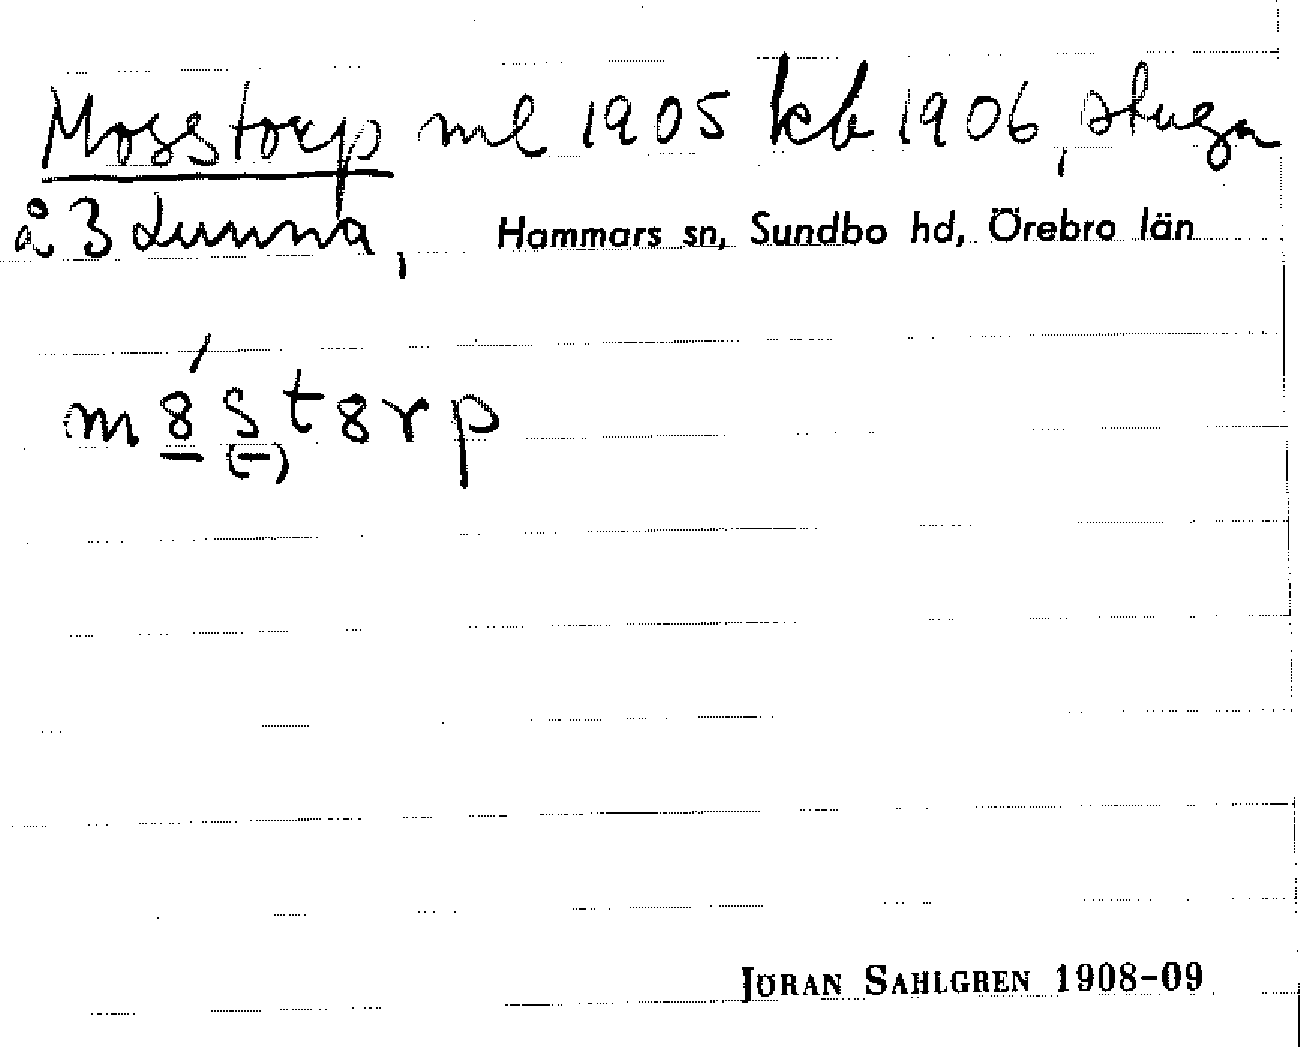 Mosstorp ml 1905 kb 1906, stuga
å 3 Lunna, Hammars sn, Sundbo hd, Örebro län
m8́st8rp
(-)
JÖRAN SAHLGREN 1908-09